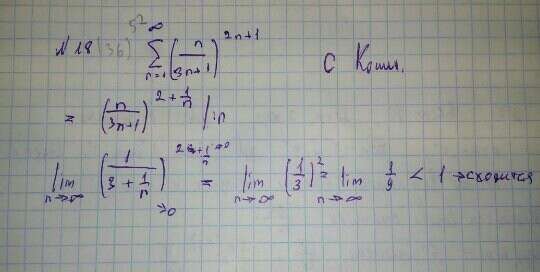 N 18 (36) 5² ∑_{n=1}^{∞} (n/(3n+1))^{2n+1} С Коши.
= (n/(3n+1))^{2+1/n} | lim
lim_{n→∞} (1/(3+1/n))^{2+1/n →0}_{→0} = lim_{n→∞} (1/3)^2 = lim_{n→∞} 1/9 < 1 → сходится